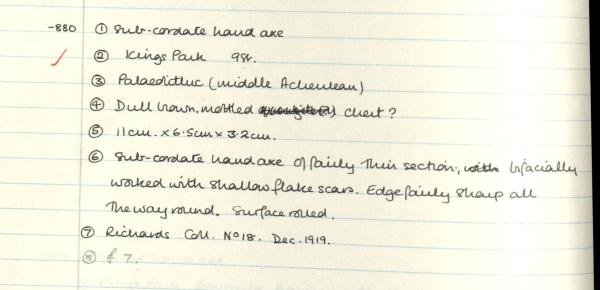 -880 ① Sub-cordate hand axe
② Kings Park 98t.
③ Palaeolithic (middle Acheulean)
④ Dull brown, mottled chert?
⑤ 11cm. x 6.5cm x 3.2cm.
⑥ Sub-cordate hand axe of fairly thin section, with bifacially
worked with shallow flake scars. Edge fairly sharp all
the way round. Surface rolled.
⑦ Richards Coll. No 18. Dec. 1919.
⑧ £7.